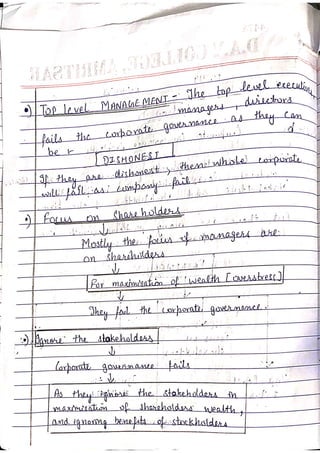 D.A.V COLLEGE, AMRITSAR
•) TOP level MANAGEMENT - The top level executives,
managers, directors
fails the corporate governance as they can
be
DISHONEST
If they are dishonest, then whole corporate
will fail as company fail.
•) Focus on Shareholders
↓
Mostly the focus of managers are
on shareholders
↓
For maximisation of wealth [overstress]
↓
They fail the corporate governence.
•) Ignore the stakeholders
↓
Corporate governance fails
↓
As they ignore the stakeholders in
maximisation of shareholders wealth,
and ignoring benefits of stockholders